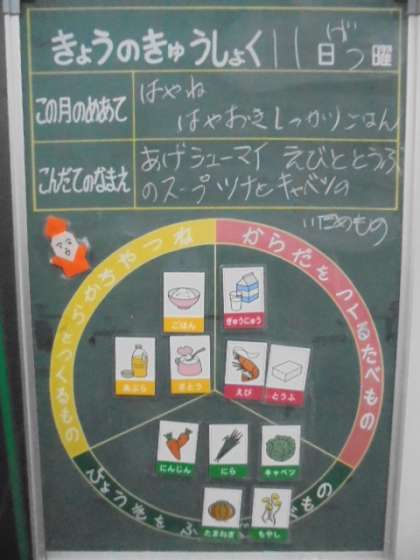 きょうのきゅうしょく 11日 げつ曜
この月のめあて
はやね
はやおきしっかりごはん
こんだてのなまえ
あげシューマイ えびととうふ
のスープ ツナとキャベツの
いためもの
ちからやねつ
となるもの
からだをつくるたべもの
ごはん
ぎゅうにゅう
あぶら
さとう
えび
とうふ
にんじん
にら
キャベツ
たまねぎ
もやし